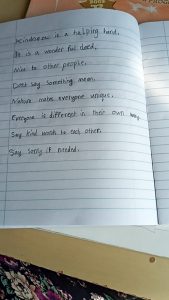 kindness is a helping hand,
It is a wonder ful deed,
Nice to other people,
Dont say something mean,
Nature makes everyone unique,
Everyone is different in their own way,
Say kind words to each other,
Say sorry if needed.